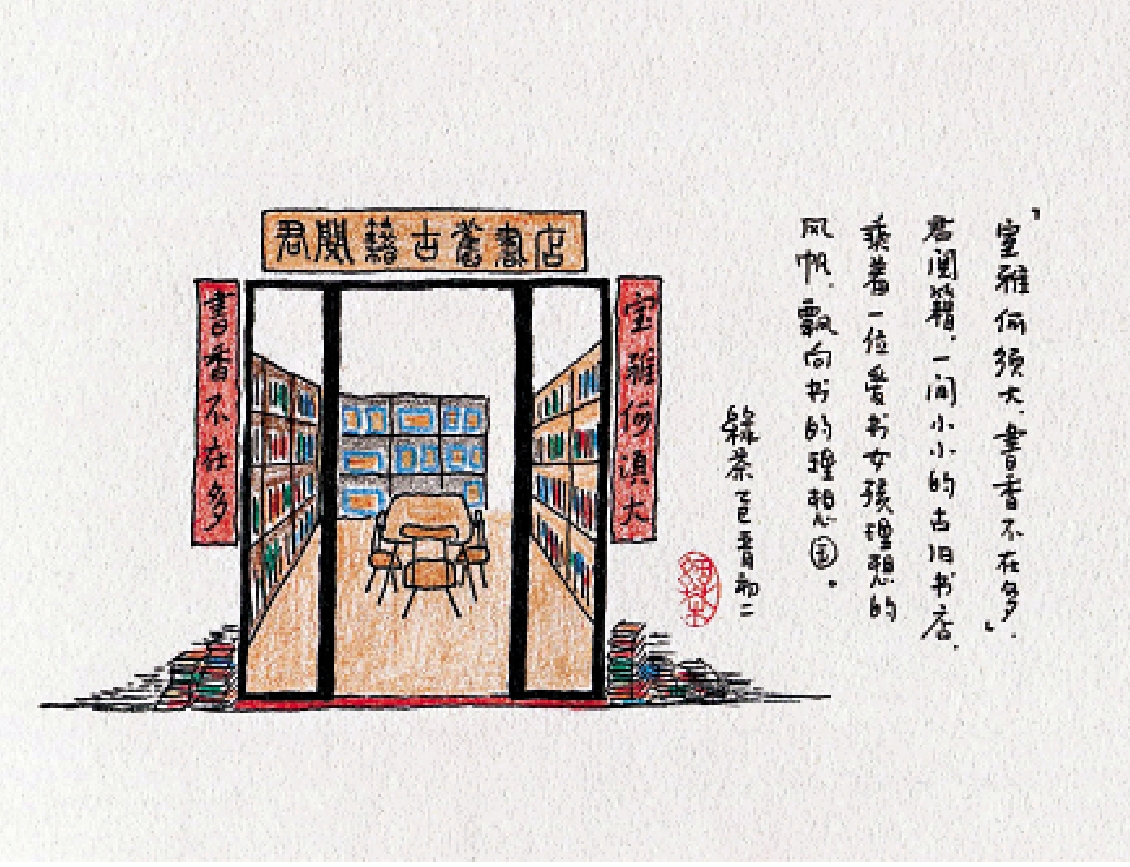 君閱籍古舊書店
室雅何須大
書香不在多
“室雅何须大,書香不在多”。
君阅籍,一间小小的古旧书店,
乘着一位爱书女孩理想的
风帆,飘向书的理想国。
綠茶 乙巳五月初二